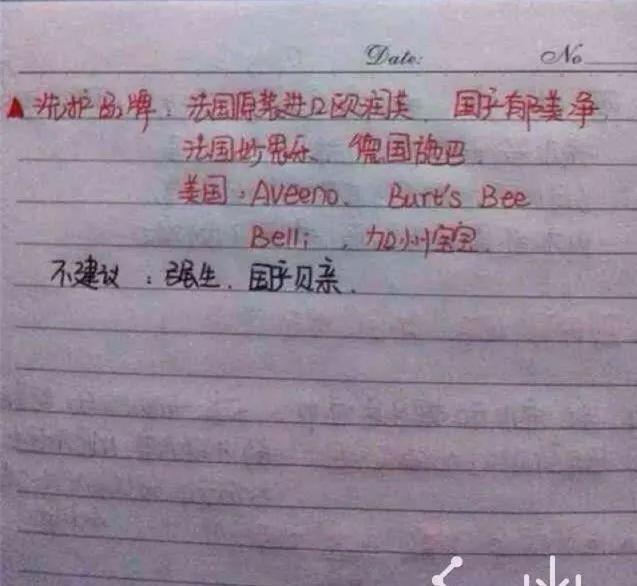 Date: No
▲洗护品牌：法国原装进口欧润芙、国产郁美净
法国妙思乐、德国施巴
美国：Aveeno、Burt's Bee
Belli、加州宝宝
不建议：强生、国产贝亲.